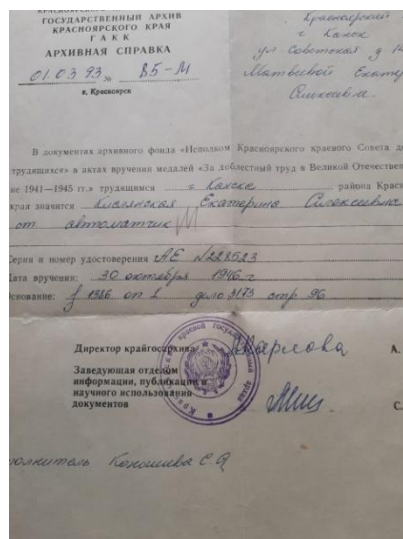 ГОСУДАРСТВЕННЫЙ АРХИВ
КРАСНОЯРСКОГО КРАЯ
Г А К К
АРХИВНАЯ СПРАВКА
01.03.93 № 85-М
г. Красноярск
Красноярский
г Канск
ул Советская д
Матвеевой
Алексеевне
В документах архивного фонда «Исполком Красноярского краевого Совета
трудящихся» в актах вручения медалей «За доблестный труд в Великой
не 1941—1945 гг.» трудящимся г Канска района
края значится Кислянская Екатерина Алексеевна
от автоматчик
Серия и номер удостоверения АЕ №228523
Дата вручения: 30 октября 1946 г
Основание: ф 1386 оп 1 дело 3173 стр 96
Директор крайгосархива
А.
Заведующая отделом
информации, публикации и
научного использования
документов
С.
Коношева С. Я